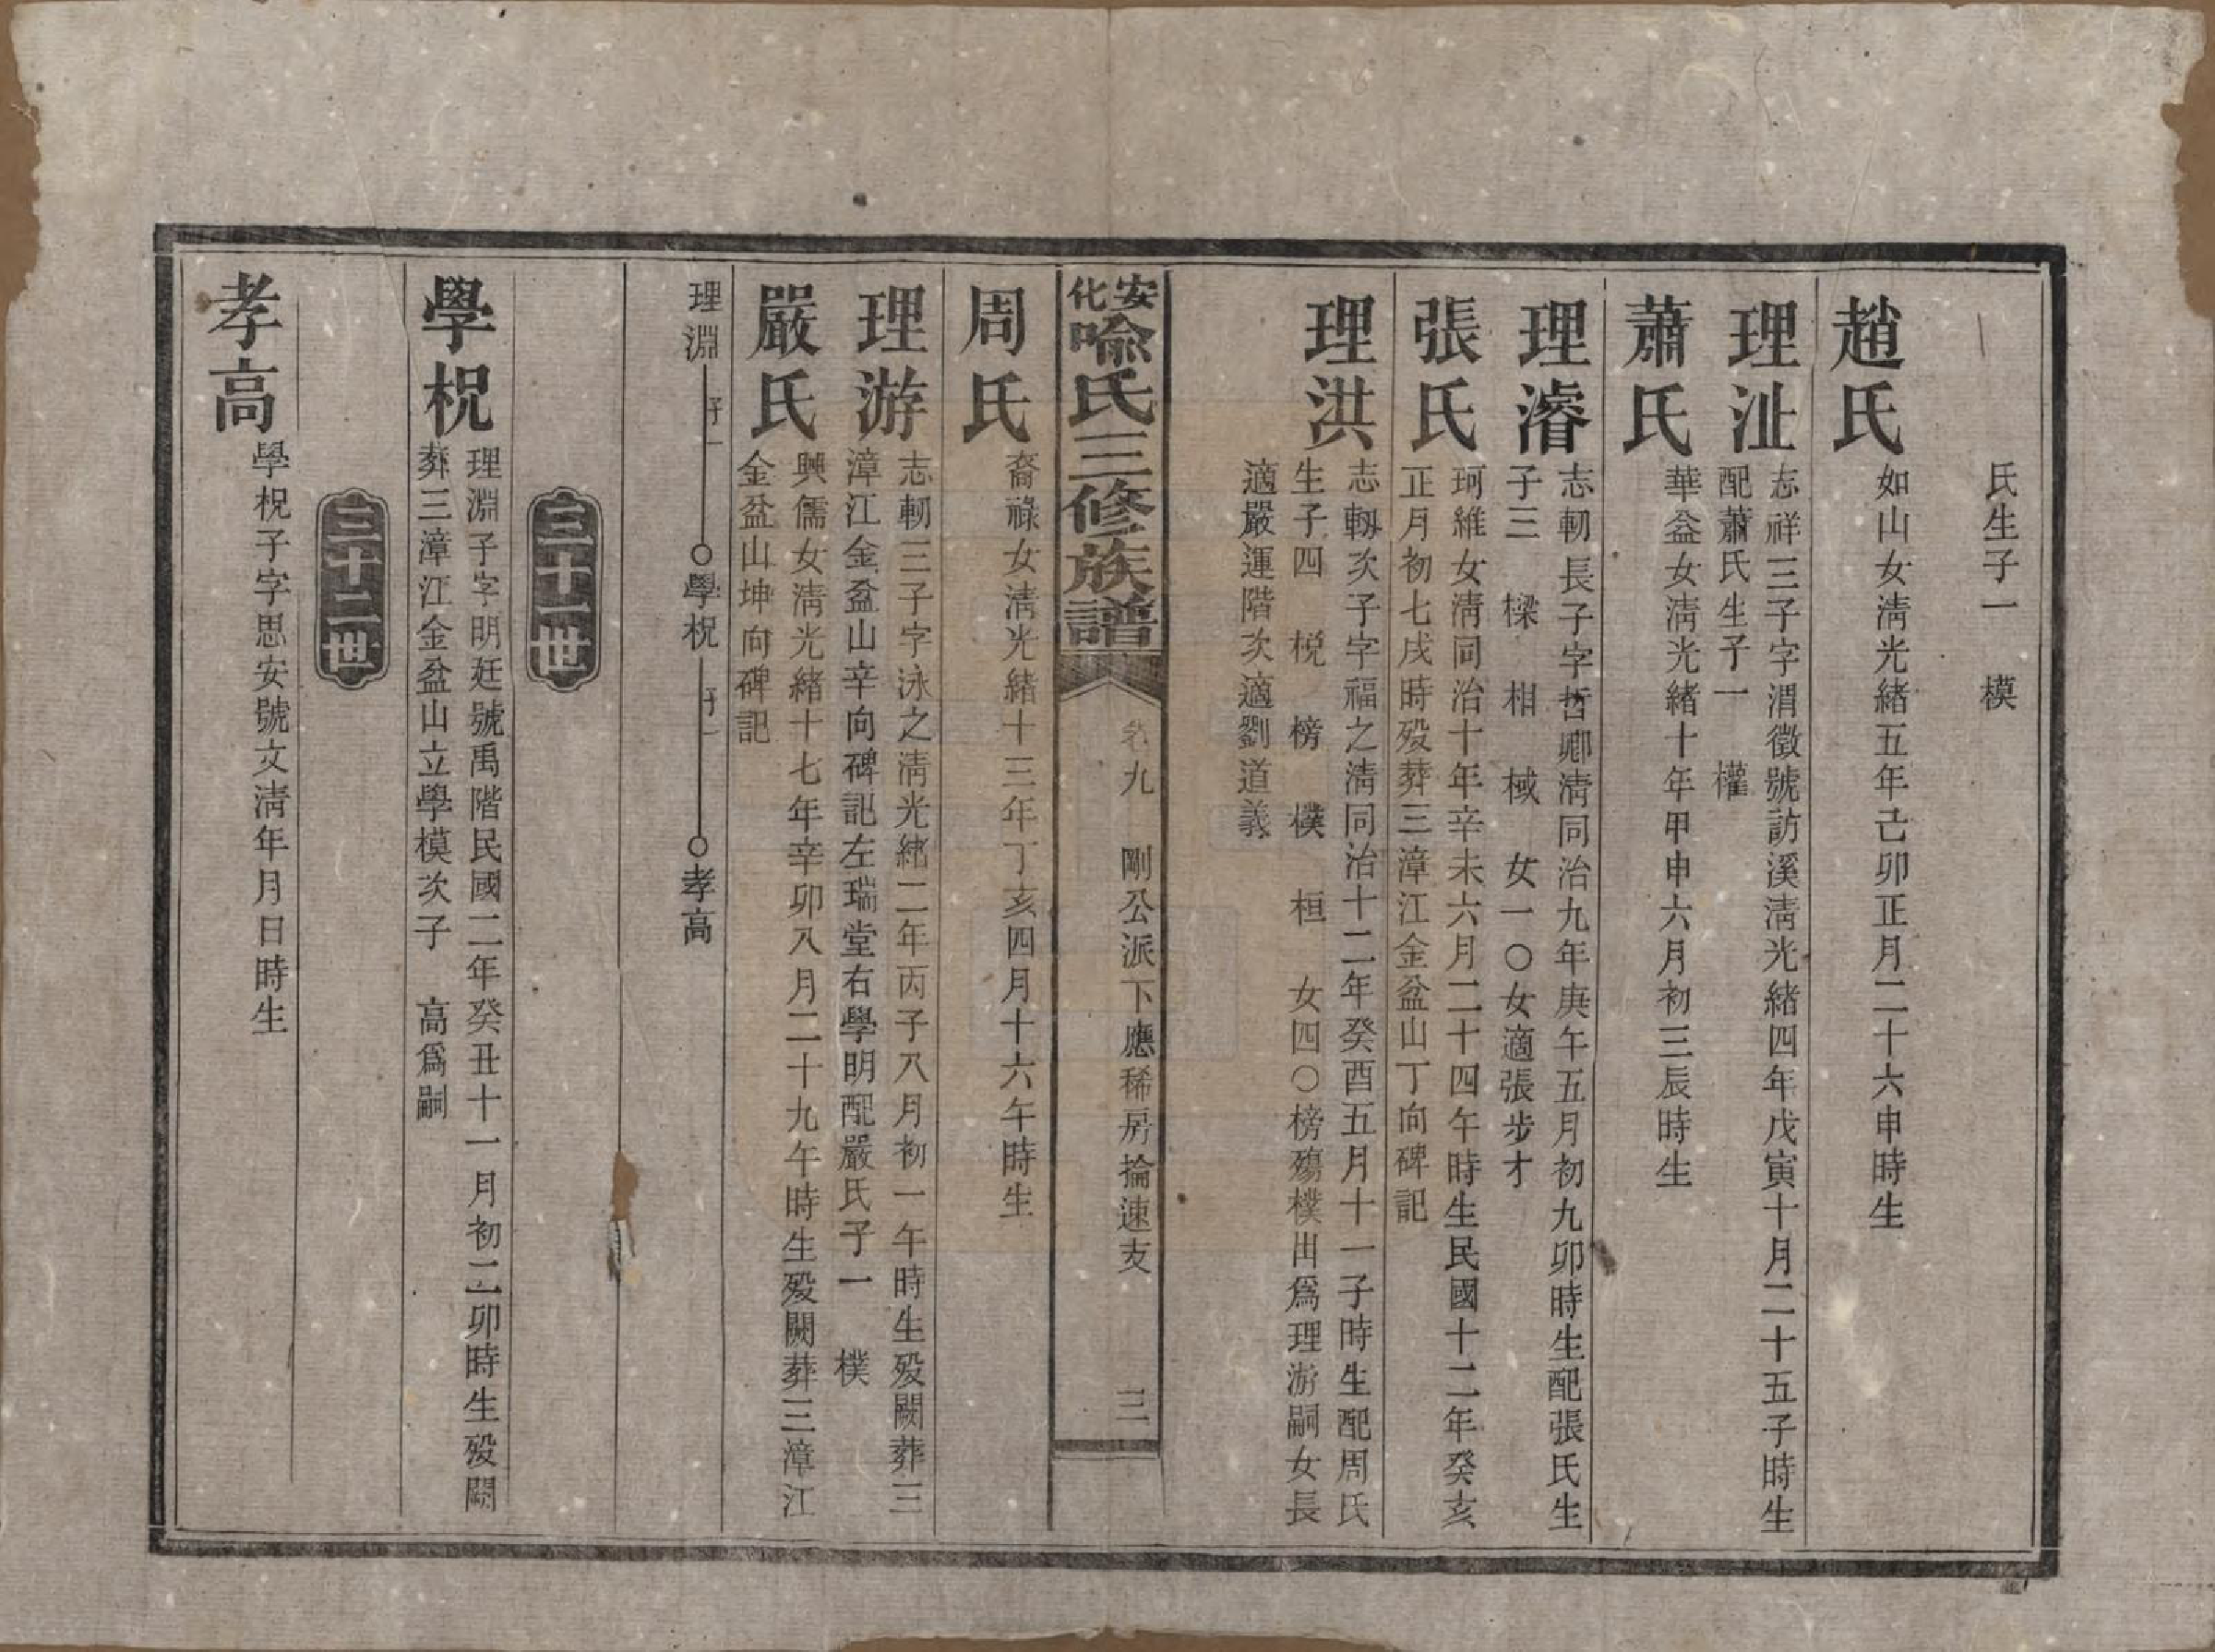 氏生子一　模
趙氏
如山女淸光緒五年己卯正月二十六申時生
理沚
志祥三子字渭徵號訪溪淸光緒四年戊寅十月二十五子時生
配蕭氏生子一　權
蕭氏
華益女淸光緒十年甲申六月初三辰時生
理濬
志軔長子字哲卿淸同治九年庚午五月初九卯時生配張氏生
子三　樑　相　棫　女一〇女適張步才
張氏
珂維女淸同治十年辛未六月二十四午時生民國十二年癸亥
正月初七戌時歿葬三漳江金盆山丁向碑記
理洪
志軔次子字福之淸同治十二年癸酉五月十一子時生配周氏
生子四　棁　榜　樸　桓　女四〇榜殤樸出爲理游嗣女長
適嚴運階次適劉道義
安化喩氏三修族譜
卷九　剛公派下應稀房掄速支
三
周氏
裔祿女淸光緒十三年丁亥四月十六午時生
理游
志軔三子字泳之淸光緒二年丙子八月初一午時生歿闕葬三
漳江金盆山辛向碑記左瑞堂右學明配嚴氏子一　樸
嚴氏
興儒女淸光緒十七年辛卯八月二十九午時生歿闕葬三漳江
金盆山坤向碑記
理淵　子一　〇學柷　子一　〇孝高
三十一世
學柷
理淵子字明廷號禹階民國二年癸丑十一月初二卯時生歿闕
葬三漳江金盆山立學模次子　高爲嗣
三十二世
孝高
學柷子字思安號文淸年月日時生